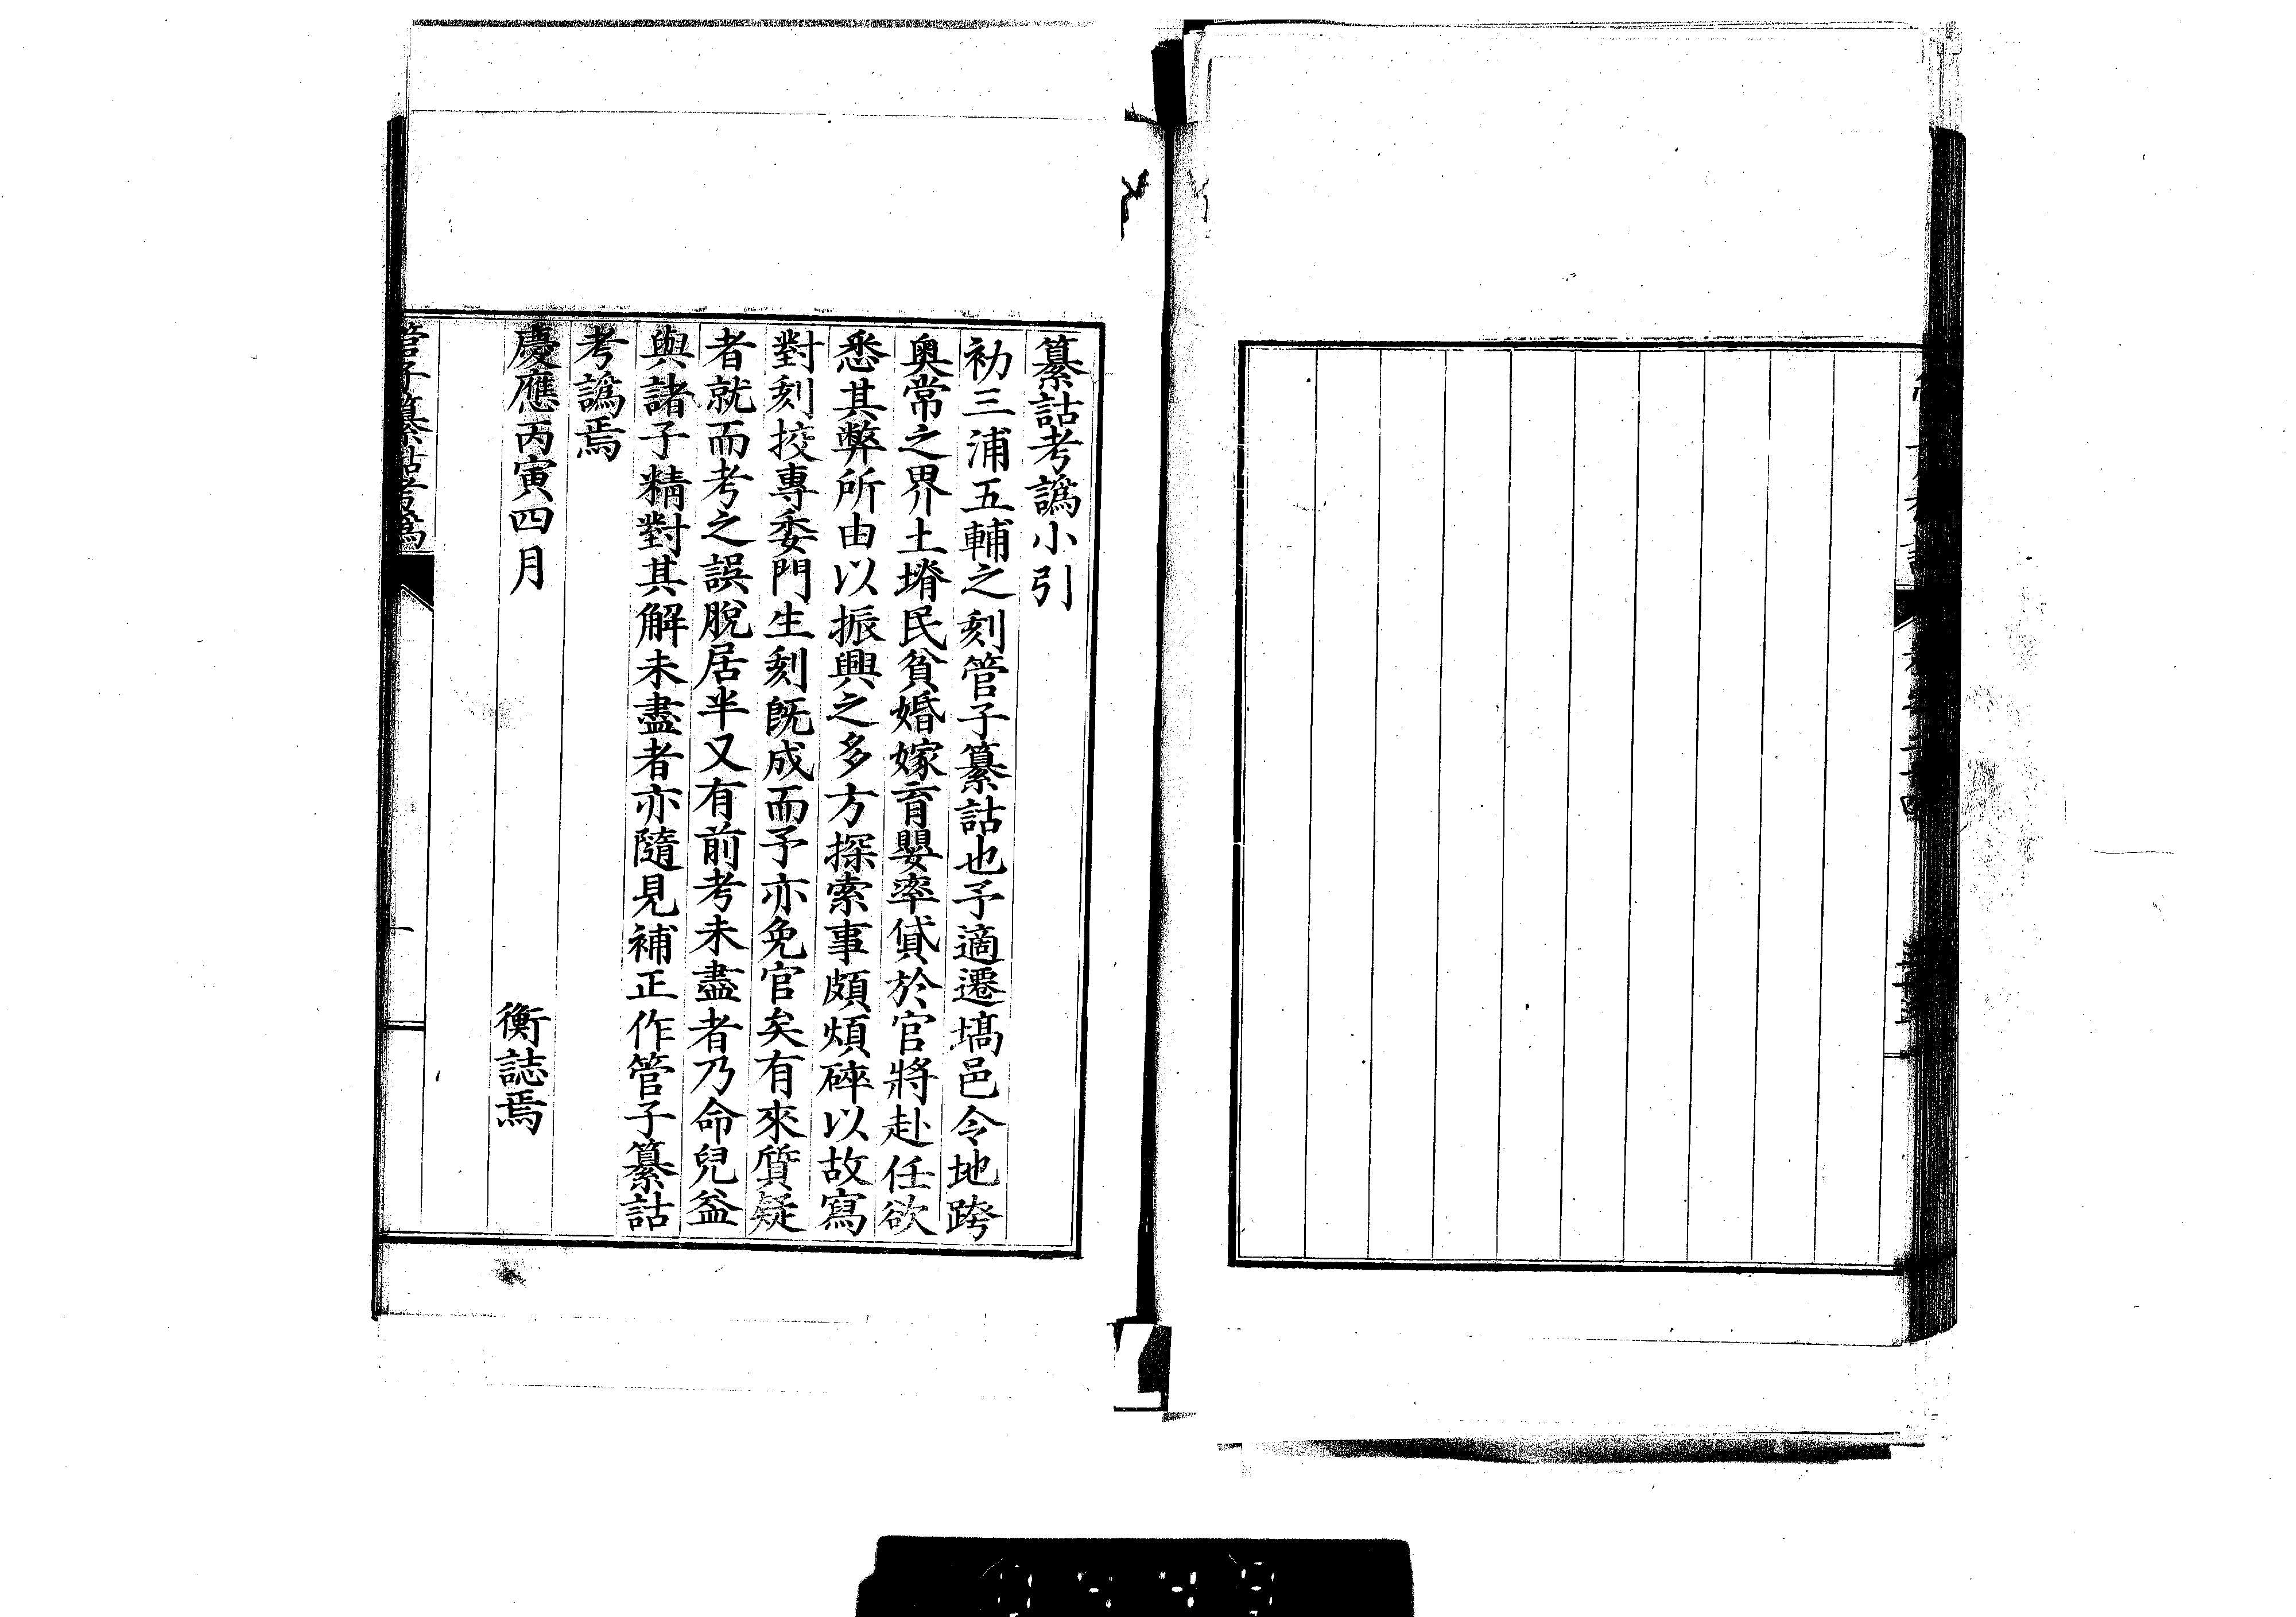 纂詁考譌小引
初三浦五輔之刻管子纂詁也予適遷塙邑令地跨
奥常之界土塉民貧婚嫁育嬰率貸於官將赴任欲
悉其弊所由以振興之多方探索事頗煩碎以故寫
對刻挍專委門生刻既成而予亦免官矣有來質疑
者就而考之誤脫居半又有前考未盡者乃命兒益
與諸子精對其解未盡者亦隨見補正作管子纂詁
考譌焉
慶應丙寅四月
衡誌焉
管子纂詁考譌
一